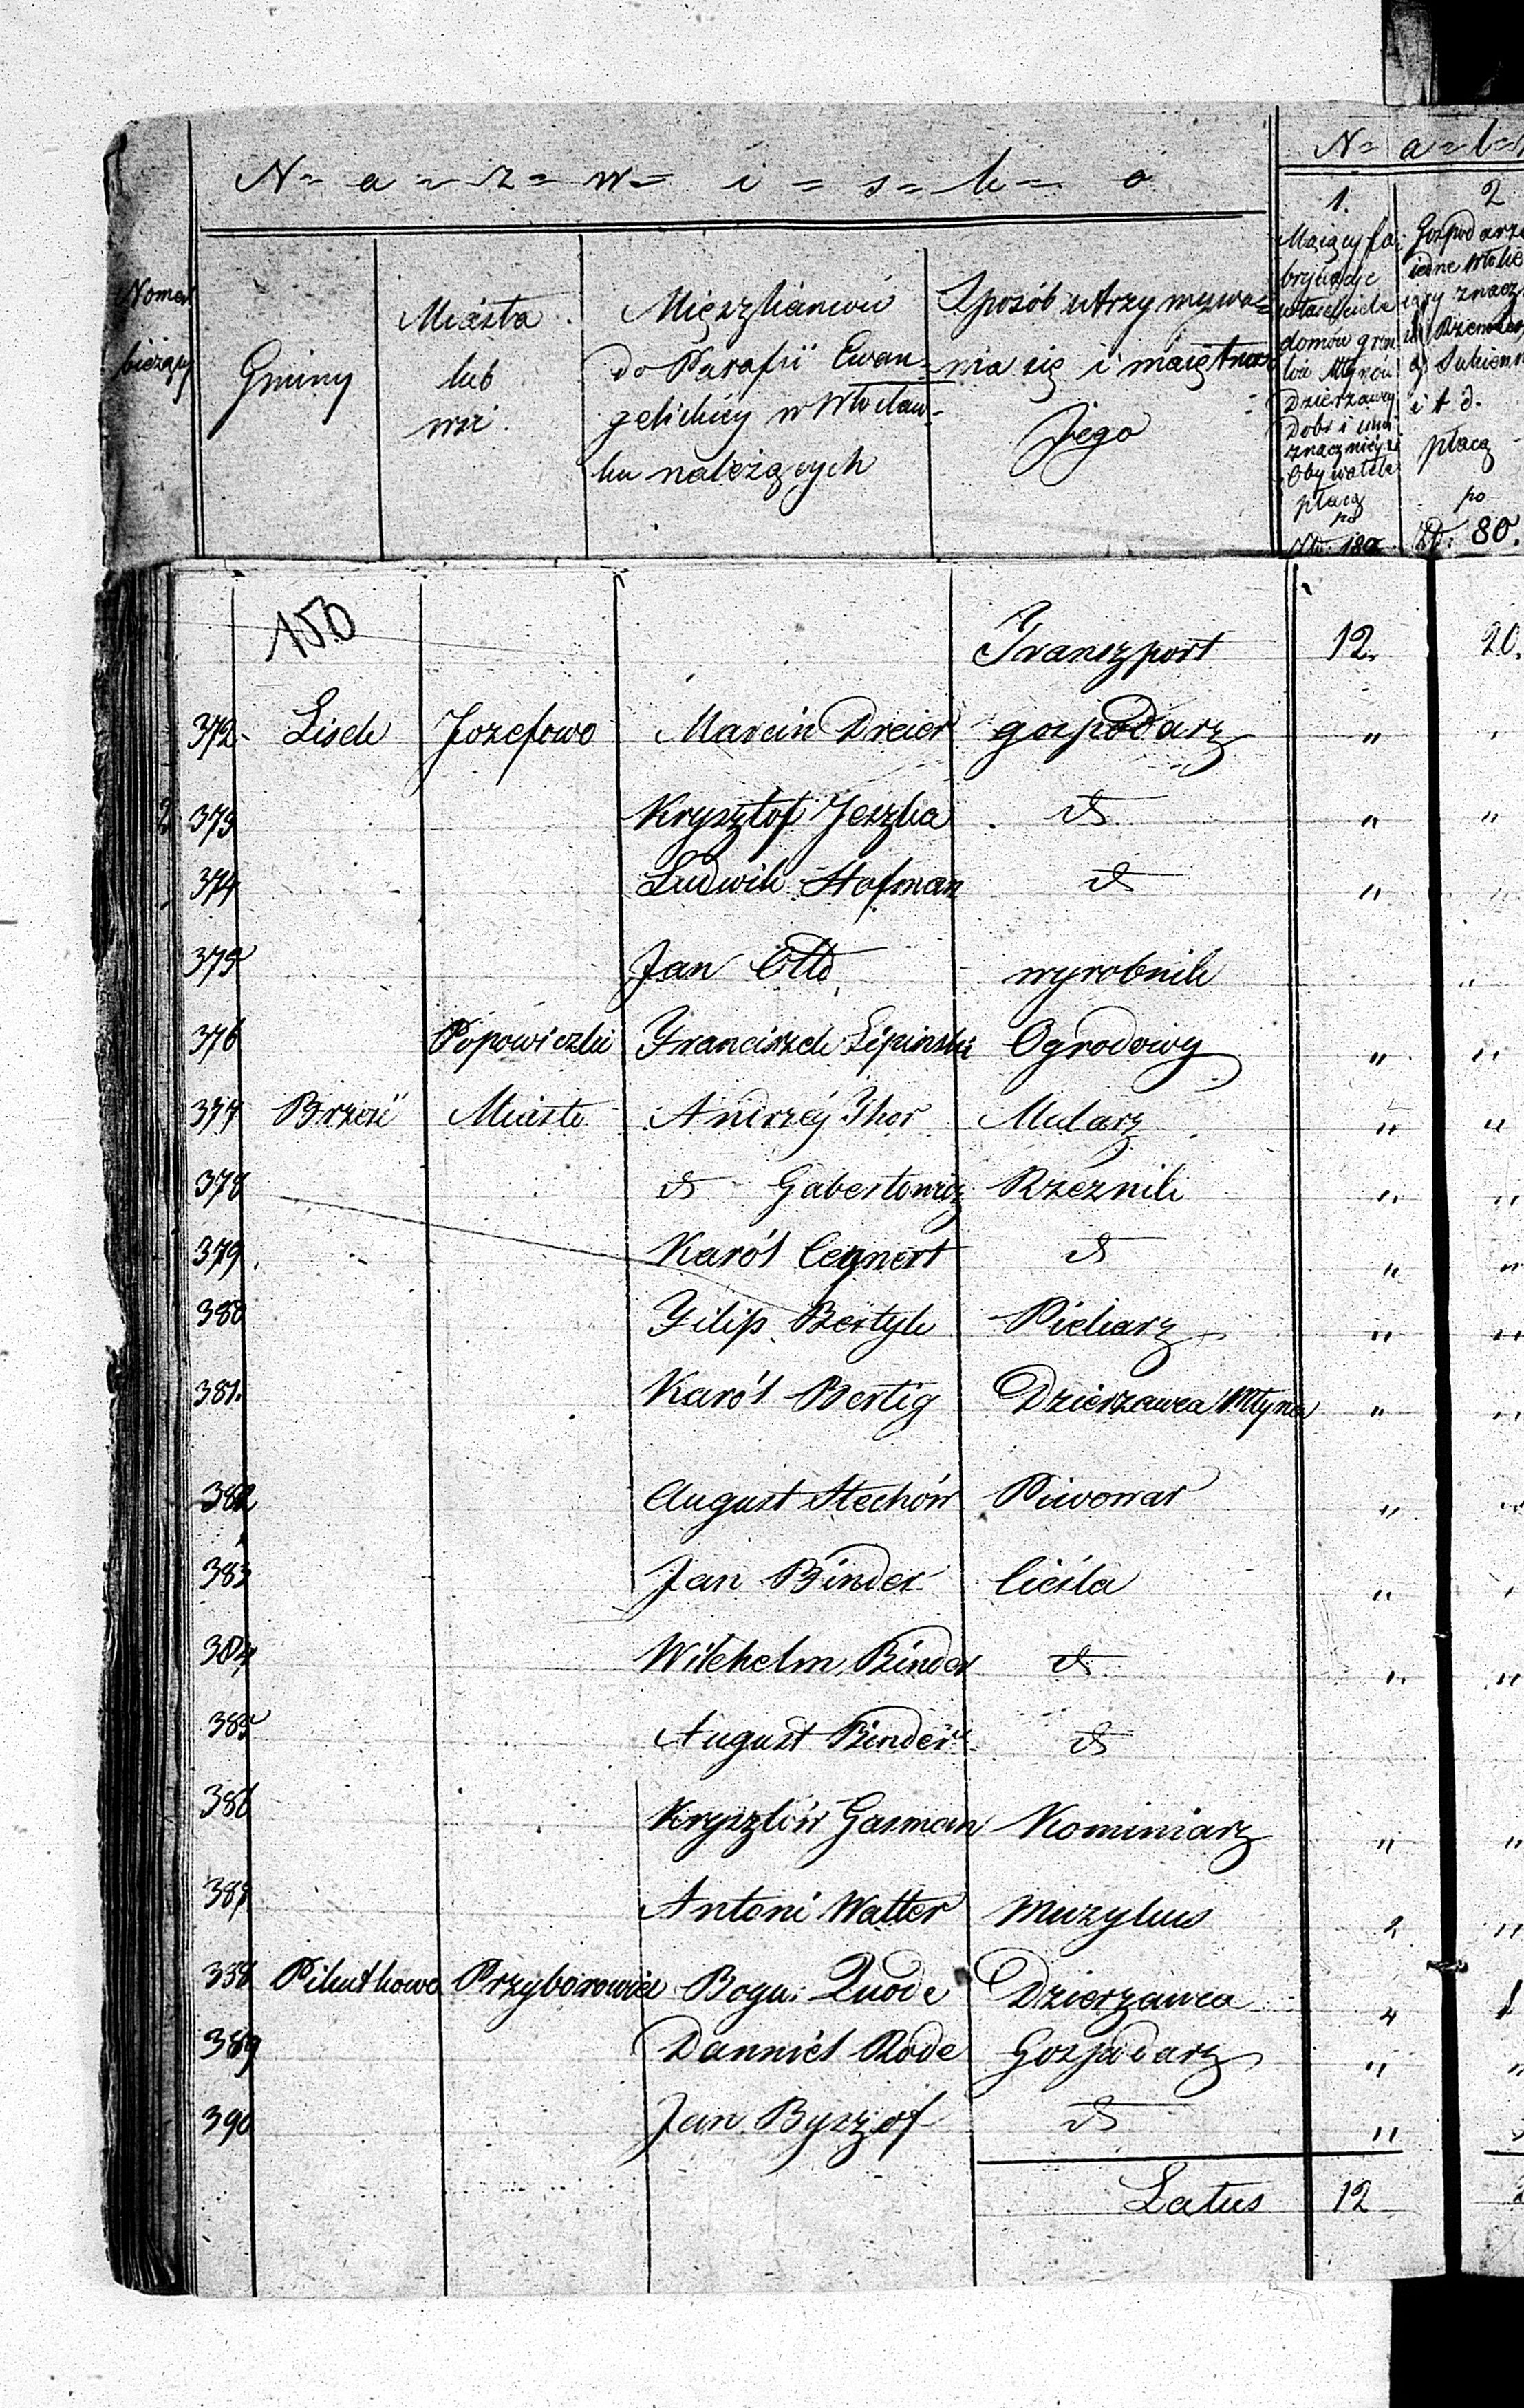 N = a = z = w = i = s = k = o
N = a = l =
Numer bieżący
Gminy
Miasta lub wsi
Mięszkańców do Parafii Ewangelickiey w Włocławku należących
Sposób utrzymywania się i maiętność Jego
1.
Maiący fabryki
właściciele
domów
Młynów
Dzierżawcy
Dobr i inni
znacznieysi
Obywatele
płacą
po
Złp. 180.
2
Gospodarze
znacz
i t d.
płacą
po
Zł. 80.
150
Transzport 12. 20.
372 Lisek Jozefowo Marcin Dreier gospodarz "
373 Krysztof Jeszka d " "
374 Ludwik Hofman d " "
375 Jan Otto wyrobnik "
376 Popowiczki Franciszek Lipinski Ogrodowy " "
377 Brześć Miasto Andrzéy Thor Mularz " "
378 d Gabertowicz Rzeznik " "
379. Karól Ceynert d " "
380 Filip Bertyk Piekarz " "
381. Karól Bertig Dzierzawca Młyna " "
382 August Stechów Piwowar " "
383 Jan Binder Cieśla "
384 Wilehelm Binder d " "
385 August Binder d
386 Krysztów Gasman Kominiarz " "
387 Antoni Walter Muzykus "
388 Pikutkowo Przyborowice Bogu. Quode Dzierzawca 1
389 Danniél Rode Gospodarz " "
390 Jan Byszof d "
Latus 12